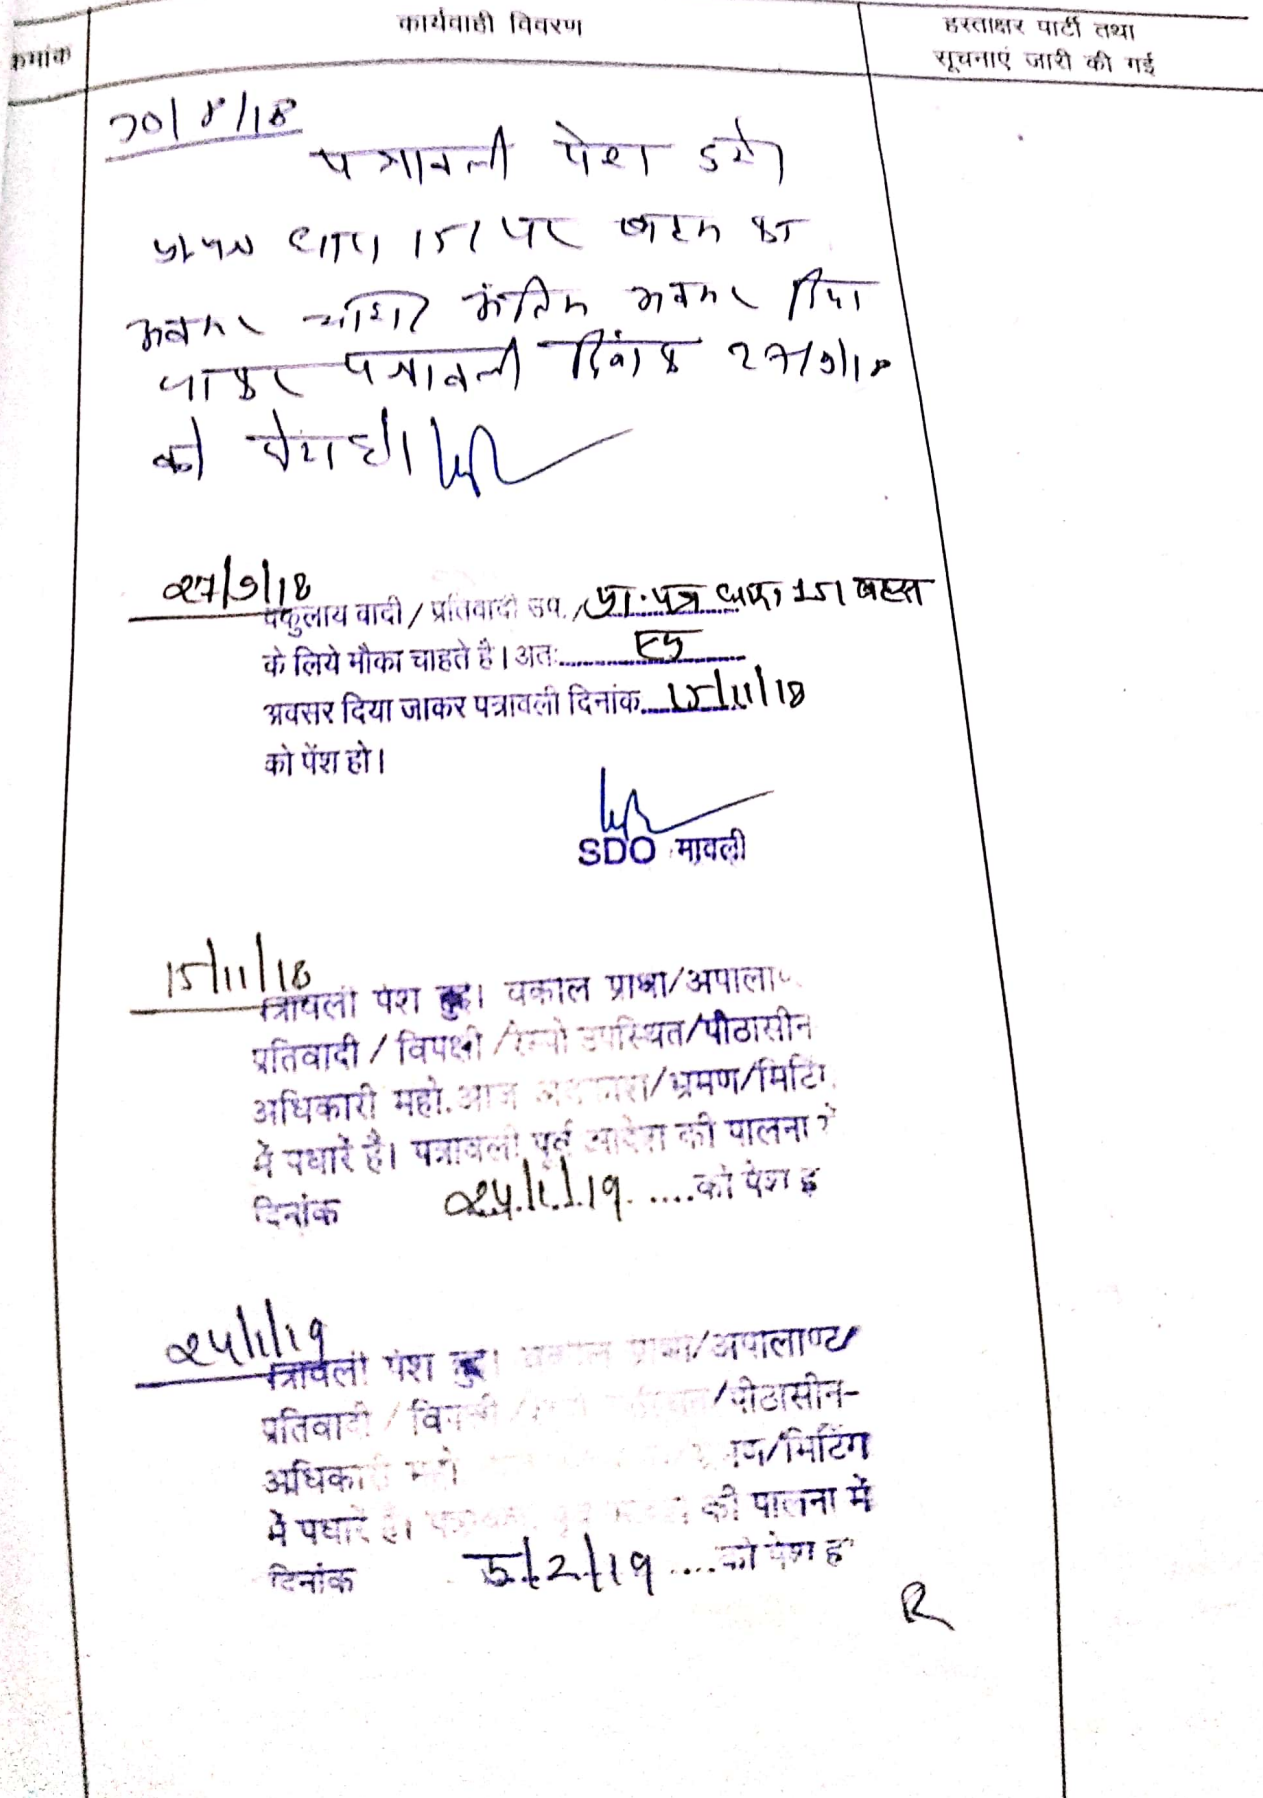 कार्यवाही विवरण
हस्ताक्षर पार्टी तथा
क्रमांक
सूचनाएं जारी की गई
30/8/18
पत्रावली पेश हुयी
धारा 151 पर बहस का
अवसर चाहा अंतिम अवसर दिया
जाकर पत्रावली दिनांक 27/9/18
को पेश हो।
27/9/18
वकुलाय वादी / प्रतिवादी उप. / प्रा. पत्र धारा 151 बहस
के लिये मौका चाहते है। अतः
अवसर दिया जाकर पत्रावली दिनांक 15/11/18
को पेंश हो।
SDO मावली
15/11/18
त्रावली पेश हुई। वकील प्रार्थी/अपीला
प्रतिवादी / विपक्षी / रेस्पो उपस्थित/पीठासीन
अधिकारी महो. आज अवकाश/भ्रमण/मिटिंग
में पधारें है। पत्रावली पूर्व आदेश की पालना में
दिनांक 24.1.19 .....को पेश ह
24/1/19
त्रावली पेश हुई। वकील प्रार्थी/अपीलाण्ट/
प्रतिवादी / विपक्षी /पीठासीन-
अधिकारी महो /मिटिंग
में पधारें है। की पालना में
दिनांक 5/2/19 ....को पेश ह
R